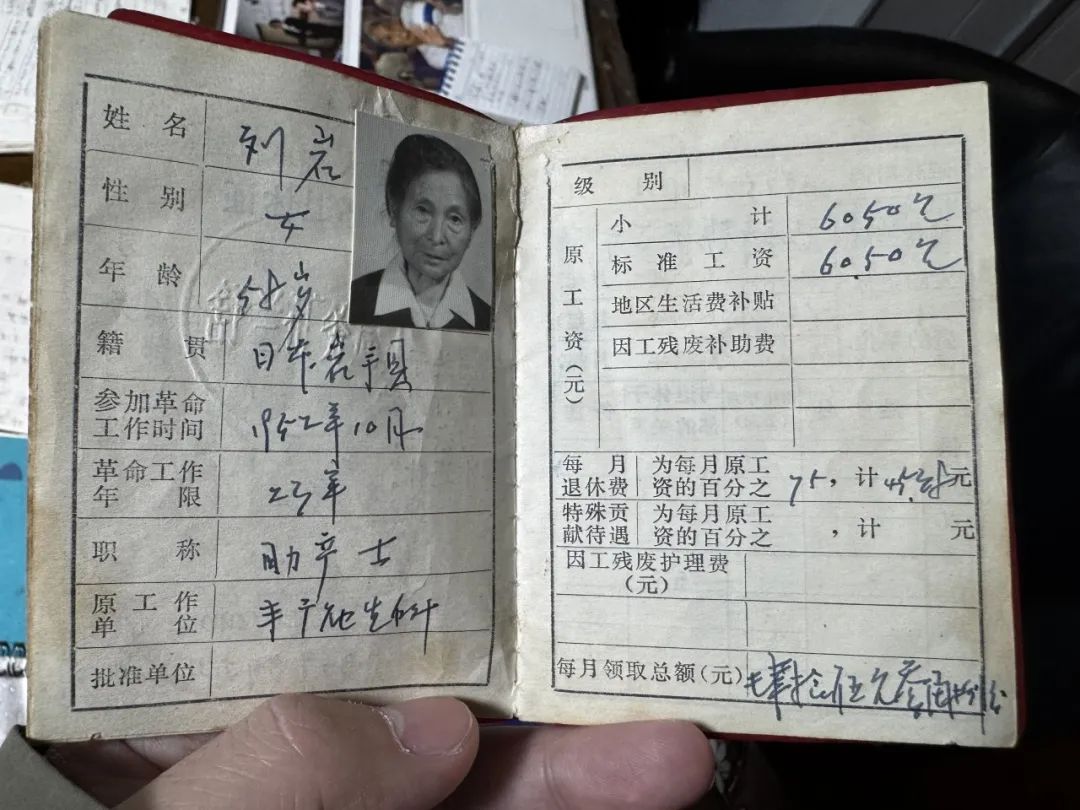 姓名 刘岩
性别 女
年龄 58岁
籍贯 日本岩手县
参加革命工作时间 1952年10月
革命工作年限 23年
职称 助产士
原工作单位 卫生科
批准单位
级别
原工资(元)
小计 60.50元
标准工资 60.50元
地区生活费补贴
因工残废补助费
每月退休费 为每月原工资的百分之75,计 元
特殊贡献待遇 为每月原工资的百分之 ,计 元
因工残废护理费(元)
每月领取总额(元)